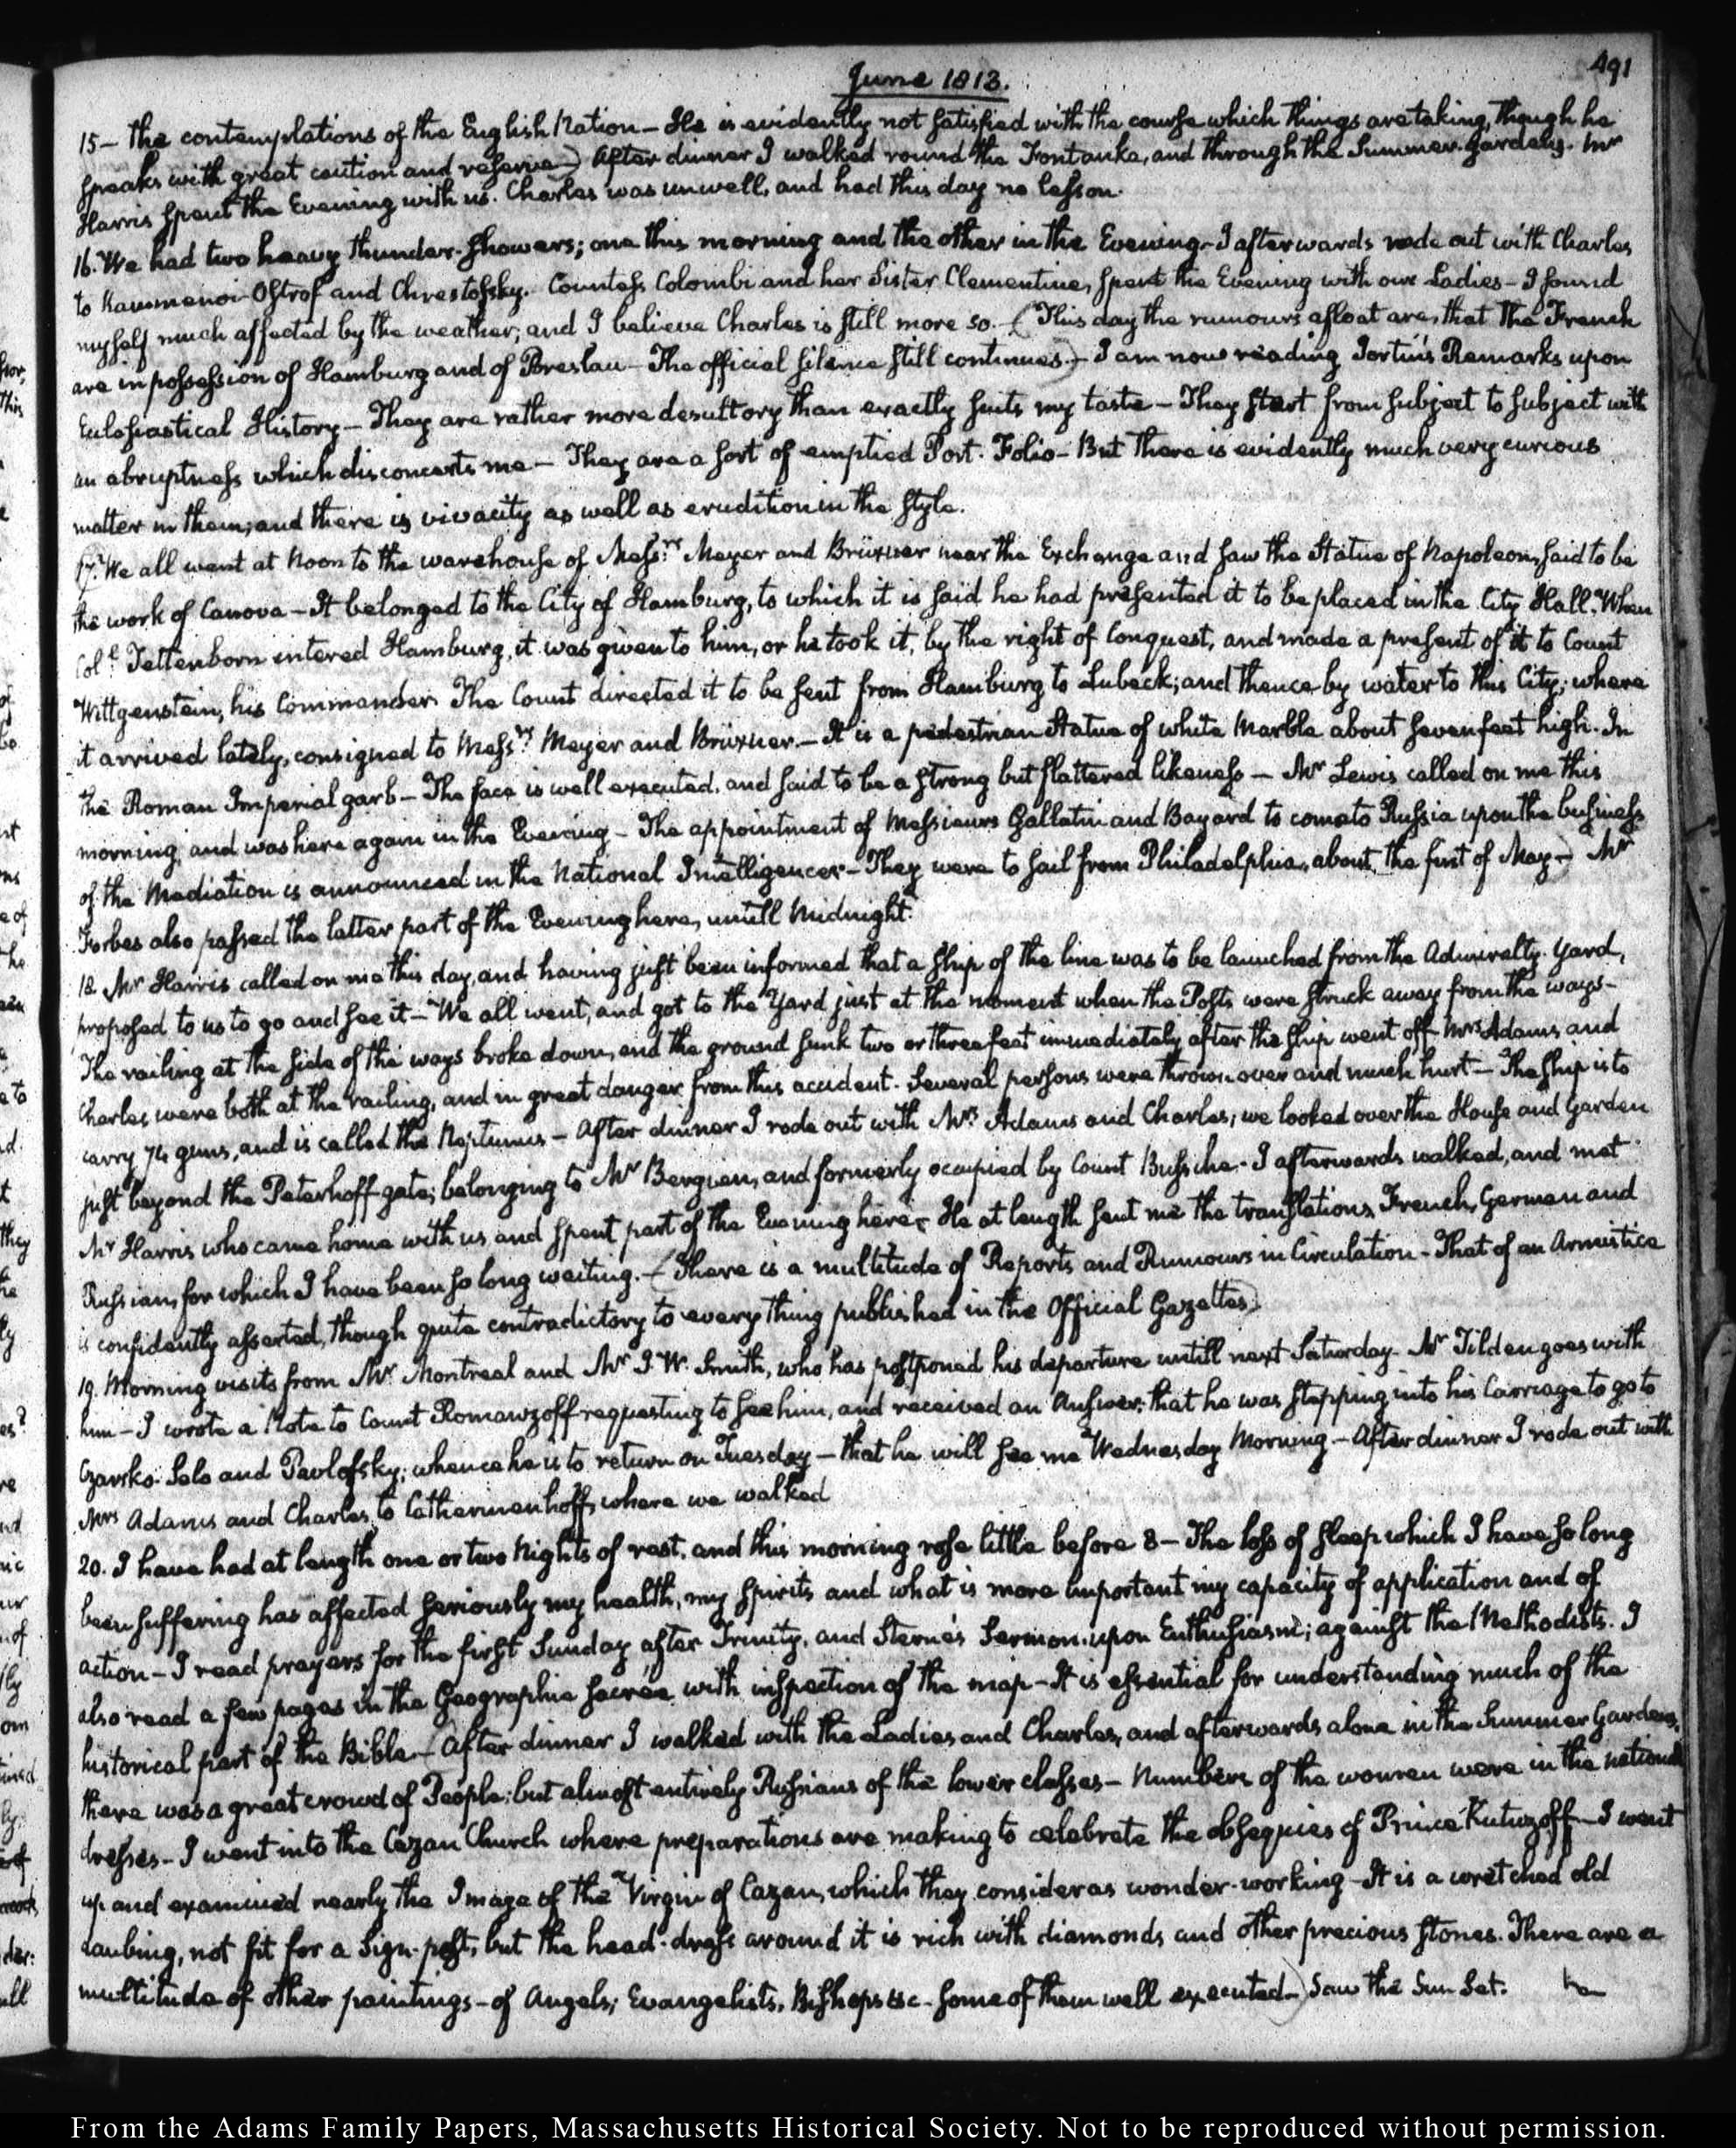 June 1813.
491
15— the contemplations of the English Nation— He is evidently not satisfied with the course which things are taking, though he
speaks with great caution and reserve—) After dinner I walked round the Fontanka, and through the Summer-Gardens. Mr
Harris spent the Evening with us. Charles was unwell, and had this day no lesson.
16. We had two heavy thunder-showers; one this morning and the other in the Evening— I afterwards rode out with Charles
to Kammenoi-Ostrof and Chrestofsky. Countess Colombi and her Sister Clementine, spent the Evening with our Ladies— I found
myself much affected by the weather; and I believe Charles is still more so.— (This day the rumours afloat are, that the French
are in possession of Hamburg and of Breslau— The official silence still continues.)— I am now reading Jortin's Remarks upon
Eclesiastical History— They are rather more desultory than exactly suits my taste— They start from subject to subject with
an abruptness which disconcerts me— They are a sort of emptied Port-Folio— But there is evidently much very curious
matter in them; and there is vivacity as well as erudition in the style.
17. We all went at Noon to the warehouse of Messrs. Meyer and Brüxner near the Exchange and saw the Statue of Napoleon, said to be
the work of Canova— It belonged to the City of Hamburg, to which it is said he had presented it to be placed in the City Hall. When
Coll. Tettenborn entered Hamburg, it was given to him, or he took it, by the right of Conquest, and made a present of it to Count
Wittgenstein, his Commander. The Count directed it to be sent from Hamburg to Lubeck; and thence by water to this City; where
it arrived lately, consigned to Messrs. Meyer and Brüxner.— It is a pedestrian Statue of white Marble about seven feet high. In
the Roman Imperial garb— The face is well executed, and said to be a strong but flattered likeness— Mr Lewis called on me this
morning, and was here again in the Evening— The appointment of Messieurs Gallatin and Bayard to come to Russia upon the business
of the Mediation is announced in the National Intelligencer— They were to sail from Philadelphia, about the first of May—) Mr
Forbes also passed the latter part of the Evening here, untill Midnight.
18 Mr Harris called on me this day, and having just been informed that a ship of the line was to be launched from the Admiralty-Yard,
proposed to us to go and see it— We all went, and got to the Yard just at the moment when the Posts were struck away from the ways—
The railing at the side of the ways broke down, and the ground sunk two or three feet immediately after the ship went off. Mrs Adams, and
Charles were both at the railing, and in great danger from this accident. Several persons were thrown over and much hurt— The ship is to
carry 74 guns, and is called the Neptunus— After dinner I rode out with Mrs Adams and Charles; we looked over the House and Garden
just beyond the Peterhoff gate; belonging to Mr Bergien, and formerly occupied by Count Bussche.— I afterwards walked, and met
Mr Harris who came home with us and spent part of the Evening here; He at length sent me the translations, French, German and
Russian, for which I have been so long waiting.— (There is a multitude of Reports and Rumours in Circulation— That of an Armistice
is confidently asserted, though quite contradictory to every thing published in the Official Gazettes.)
19. Morning visits from Mr Montreal and Mr J. W. Smith, who has postponed his departure untill next Saturday. Mr Tilden goes with
him— I wrote a Note to Count Romanzoff requesting to see him, and received an Answer, that he was stepping into his Carriage to go to
Czarsko-Selo and Pavlofsky; whence he is to return on Tuesday— that he will see me Wednesday Morning— After dinner I rode out with
Mrs Adams and Charles, to Catherinenhoff, where we walked
20. I have had at length one or two Nights of rest, and this morning rose little before 8— The loss of sleep which I have so long
been suffering has affected seriously my health, my spirits and what is more important my capacity of application and of
action— I read prayers for the first Sunday after Trinity, and Sterne's Sermon upon Enthusiasm; against the Methodists. I
also read a few pages in the Geographie Sacrée, with inspection of the map— It is essential for understanding much of the
historical part of the Bible.— (After dinner I walked with the Ladies and Charles, and afterwards alone in the Summer Gardens,
there was a great crowd of People; but almost entirely Russians of the lower classes— Numbers of the women were in the national
dresses— I went into the Cazan Church where preparations are making to celebrate the obsequies of Prince Kutuzoff— I went
up and examined nearly the Image of the Virgin of Cazan, which they consider as wonder-working— It is a wretched old
daubing, not fit for a Sign-post; but the head-dress around it is rich with diamonds and other precious stones. There are a
multitude of other paintings— of Angels, Evangelists, Bishops &c— some of them well executed—) Saw the Sun Set.
From the Adams Family Papers, Massachusetts Historical Society. Not to be reproduced without permission.